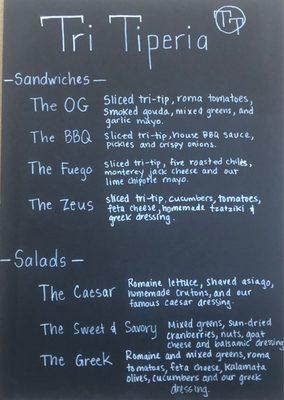 Tri Tiperia
TT
- Sandwiches -
The OG Sliced tri-tip, roma tomatoes,
smoked gouda, mixed greens, and
garlic mayo.
The BBQ sliced tri-tip, house BBQ sauce,
pickles and crispy onions.
The Fuego sliced tri-tip, fire roasted chiles,
monterey jack cheese and our
lime chipotle mayo.
The Zeus sliced tri-tip, cucumbers, tomatoes,
feta cheese, homemade tzatziki &
greek dressing.
- Salads -
The Caesar Romaine lettuce, shaved asiago,
homemade crutons, and our
famous caesar dressing.
The Sweet & Savory Mixed greens, sun-dried
cranberries, nuts, goat
cheese and balsamic dressing
The Greek Romaine and mixed greens, roma
tomatoes, feta cheese, kalamata
olives, cucumbers and our greek
dressing.